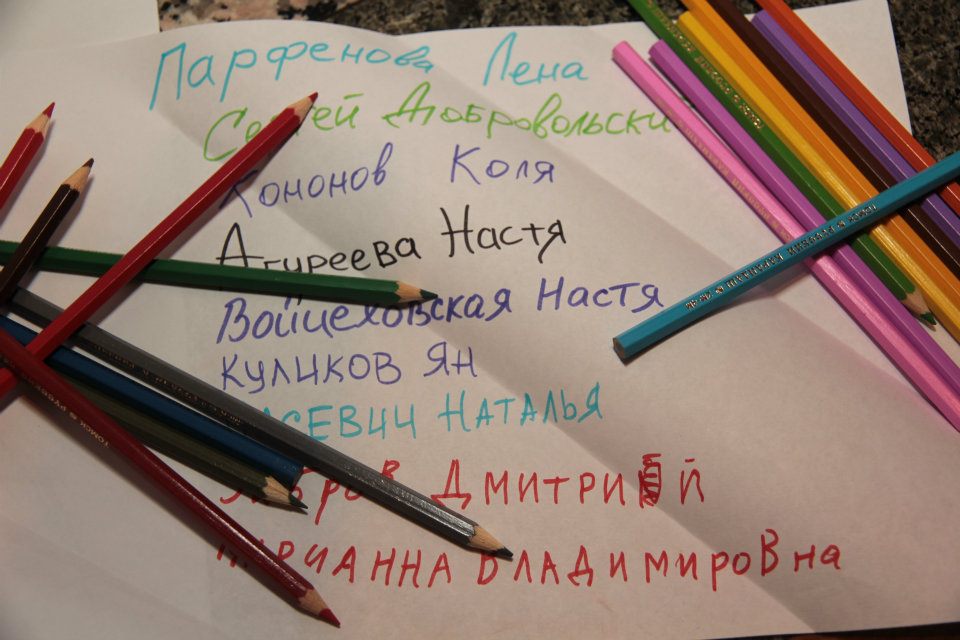 Парфенова Лена
Сергей Добровольски
Кононов Коля
Агуреева Настя
Войцеховская Настя
Куликов Ян
Наталья
Дмитрий
Марианна Владимировна